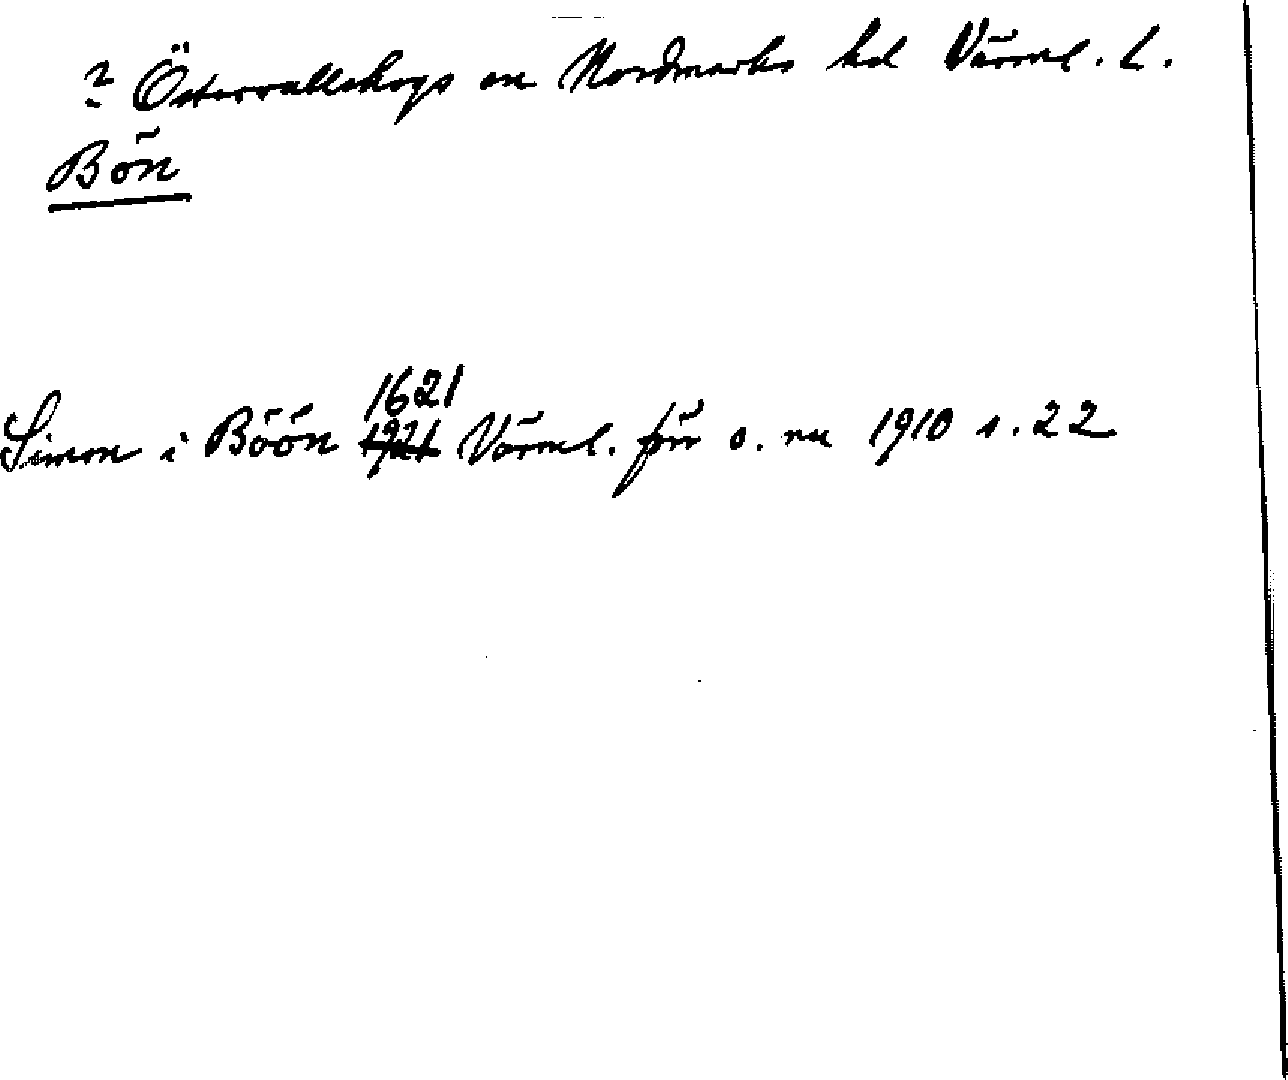 ? Östervallskogs sn Nordmarks hd Värml. L.
Bön
1621
Simon i Böön 1921 Värml. förr o. nu 1910 s. 22